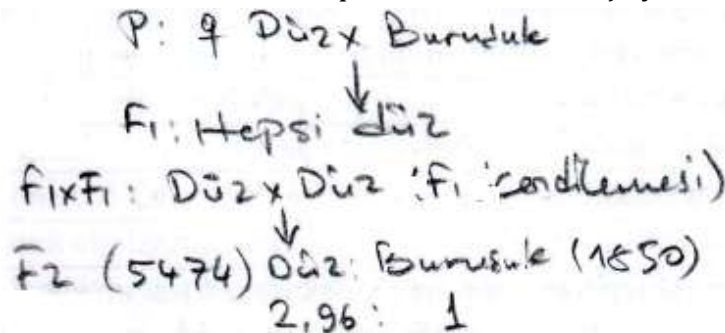 P: ♀ Düz x Buruşuk
F1: Hepsi düz
F1xF1: Düz x Düz (F1 kendilemesi)
F2 (5474) Düz: Buruşuk (1850)
2,96 : 1